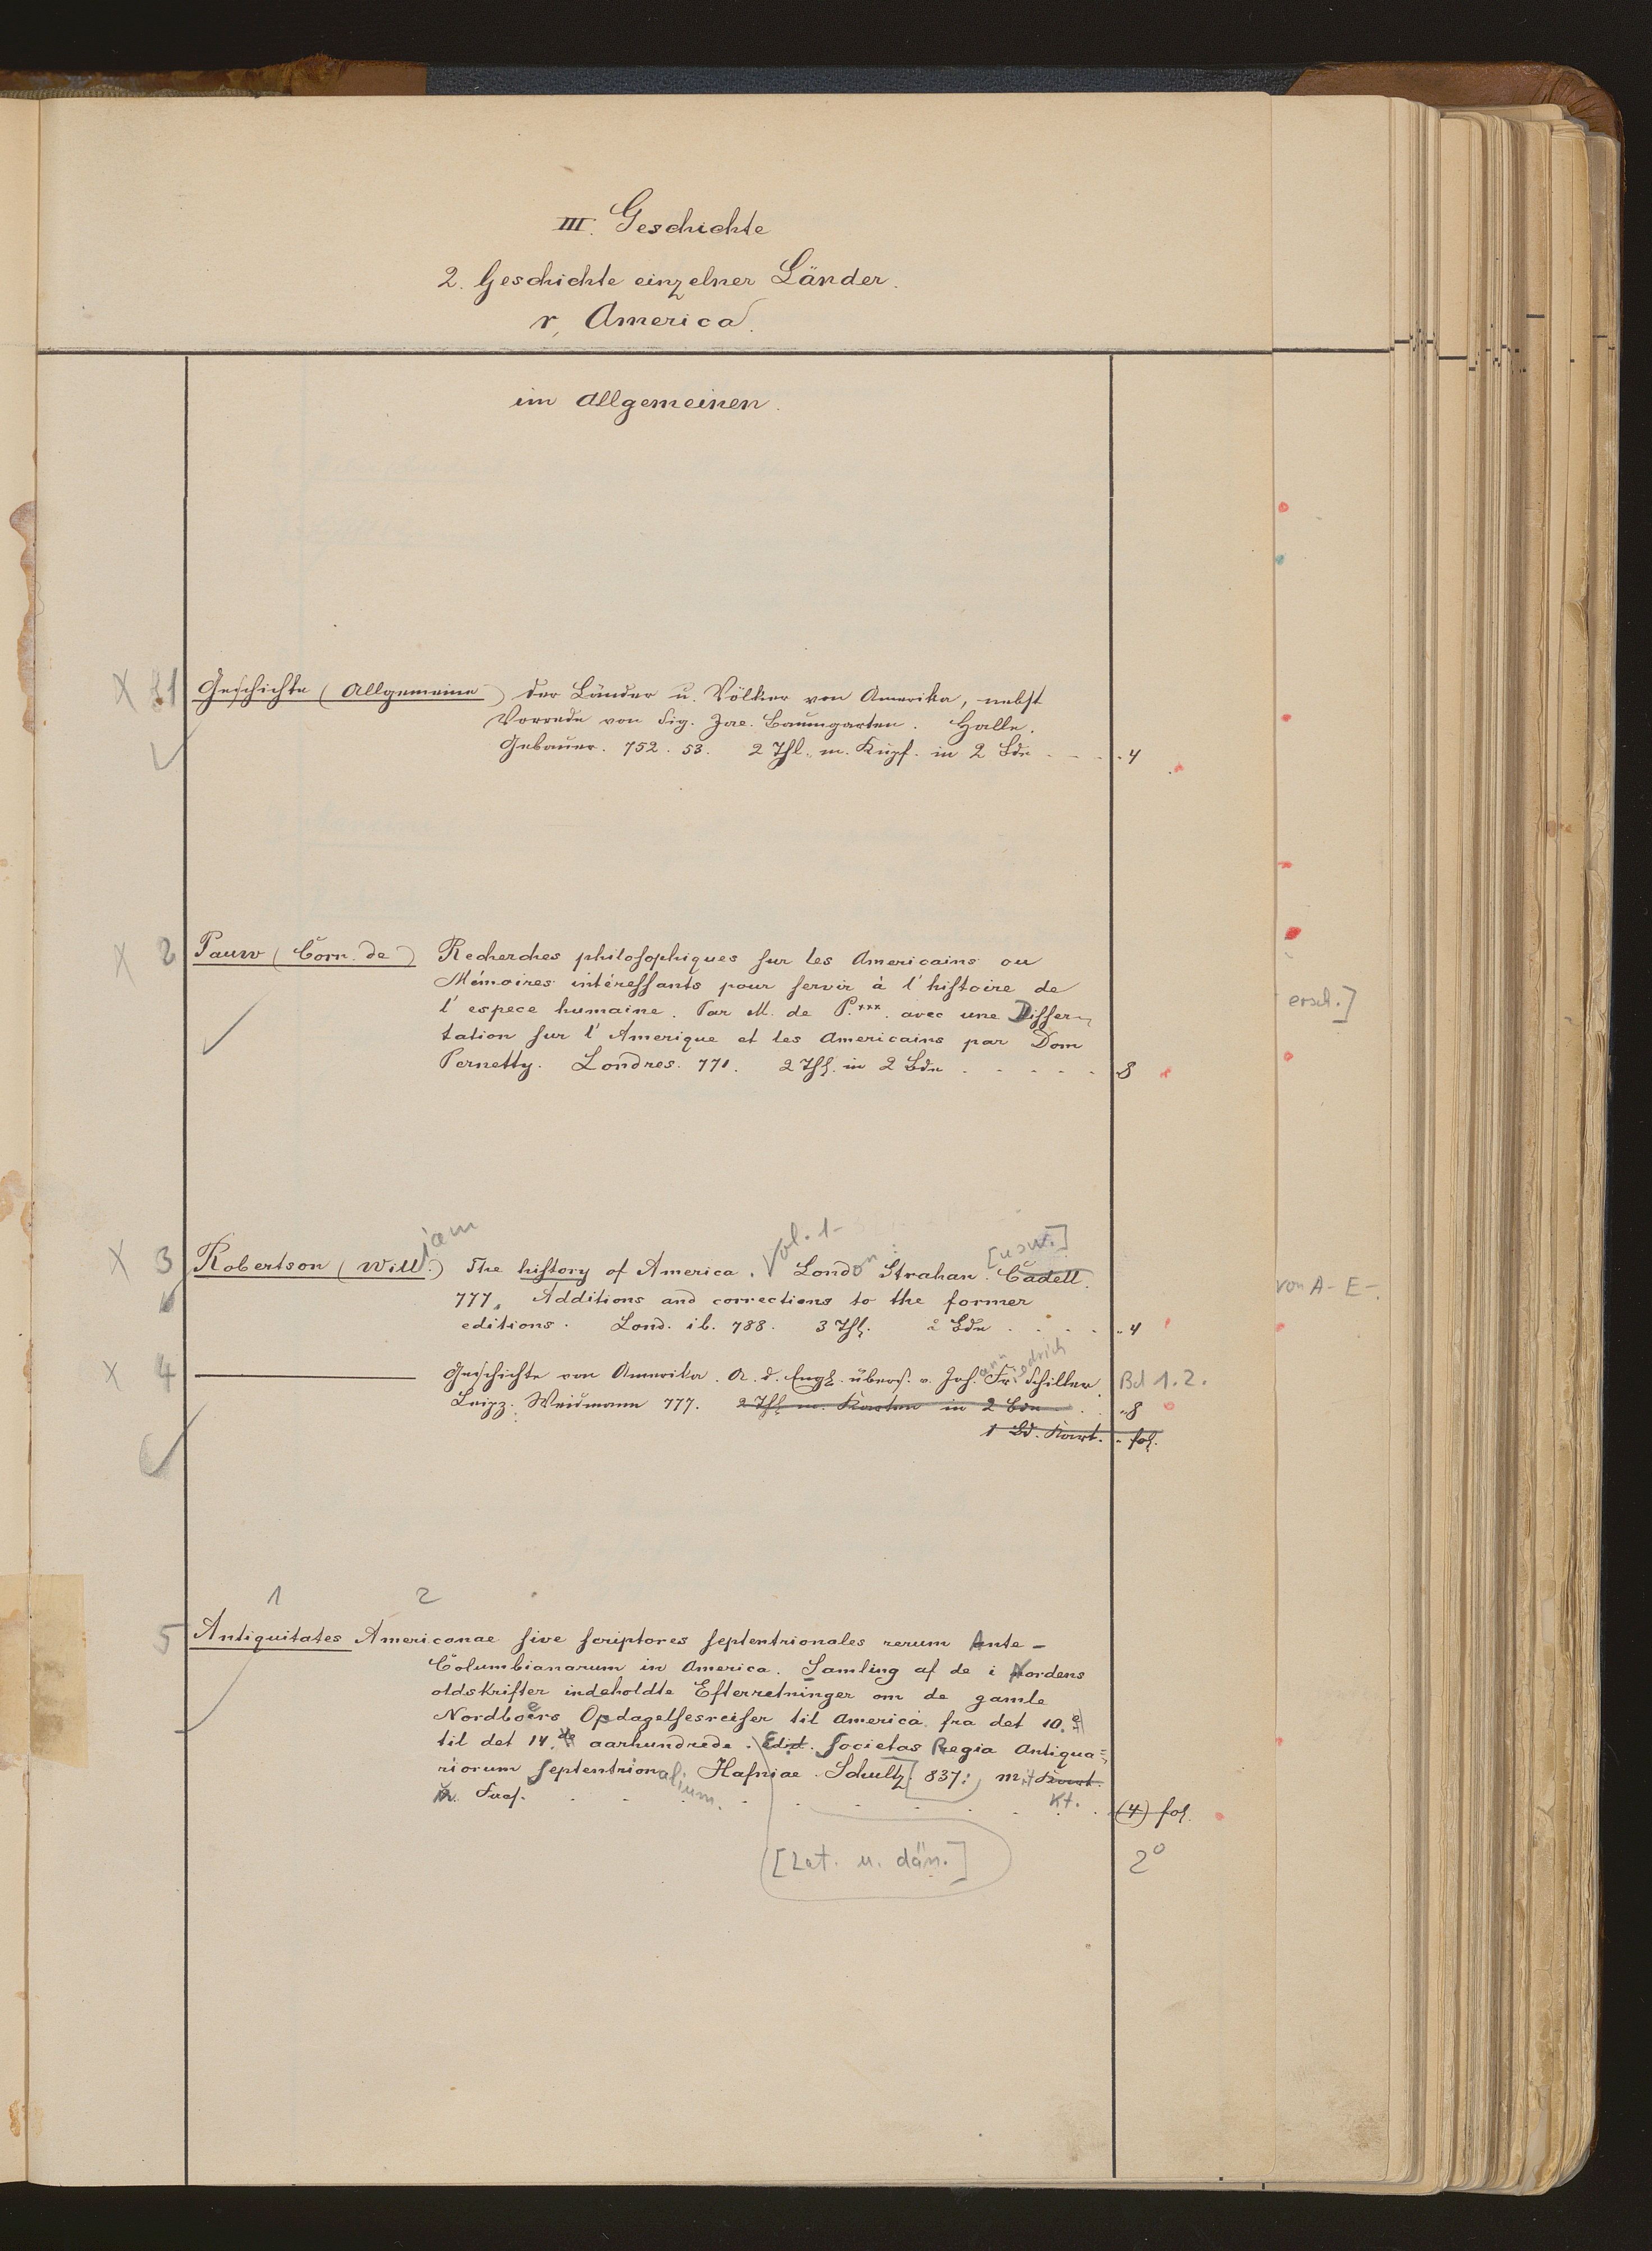 III. Geschichte
2. Geschichte einzelner Länder.
r, America.
im Allgemeinen.
X 1 Geschichte (Allgemeine) der Länder u. Völker von Amerika, nebst
Vorrede von Sig. Jac. Baumgarten. Halle.
Gebauer. 752. 53. 2 Thl. m. Kupf. in 2 Bdn . . . 4
X 2 Pauw (Corn. de) Recherches philosophiques sur les Americains ou
Mémoires intéressants pour servir à l'histoire de
l'espece humaine. Par M. de P.***. avec une Disser-
tation sur l'Amerique et les Americains par Dom
Pernetty. Londres. 771. 2 Thl. in 2 Bdn . . . . . 8
ersch.]
X 3 Robertson (William) The history of America. Vol. 1- London: Strahan. [usw.] Cadell.
777. Additions and corrections to the former
editions. Lond. ib. 788. 3 Thl. 2 Bdn . . . . 4
von A- E-.
X 4 ——— Geschichte von Amerika. A. d. Engl. übers. v. Johann Friedrich Schiller. Bd 1.2.
Leipz.: Weidmann 777. 2 Thl m. Karten in 2 Bdn . . 8
1 Bd. Kart. . fol.
1 2
5 Antiquitates Americanae sive scriptores septentrionales rerum Ante-
Columbianarum in America. Samling af de i Nordens
oldskrifter indeholdte Efterretninger om de gamle
Nordboers Opdagelsesreiser til America fra det 10.
til det 14. aarhundrede. Edid. Societas Regia Antiqua-
riorum Septentrionalium. Hafniae. Schultz. 837. mit Kart.
Facs. . . . Kt. . (4) fol.
[Lat. u. dän.] 2°